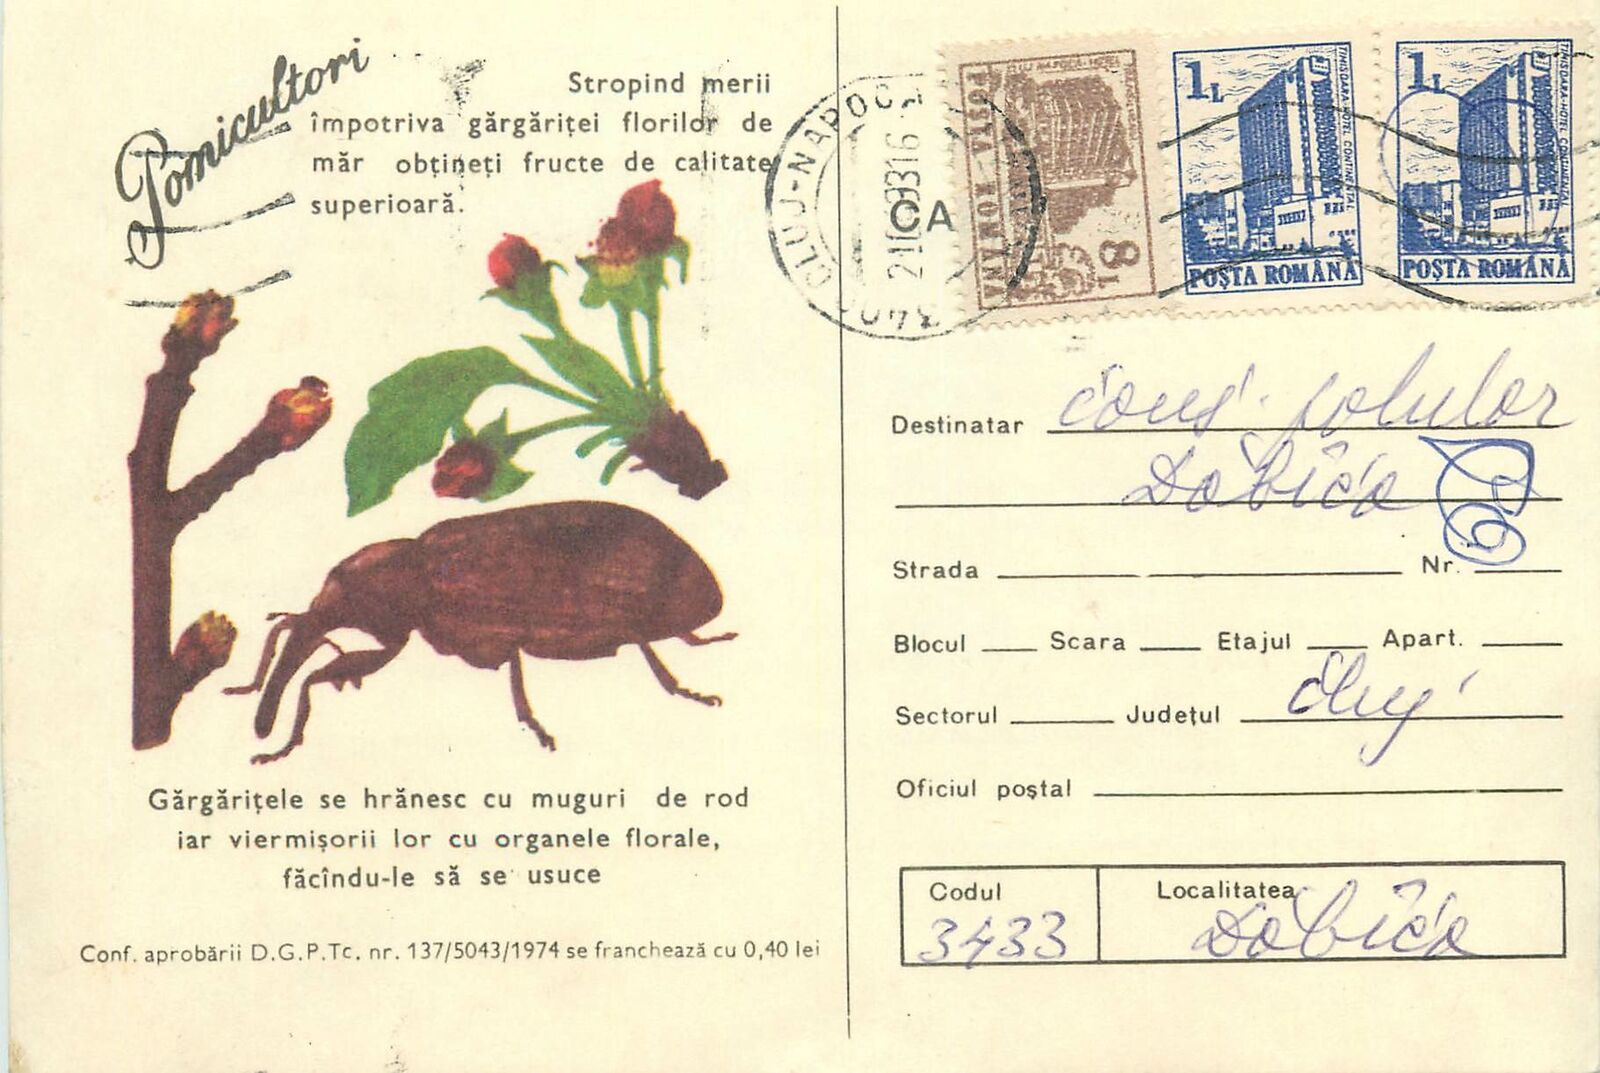 Pomicultori
Stropind merii
împotriva gărgăriței florilor de
măr obțineți fructe de calitate
superioară.
Gărgărițele se hrănesc cu muguri de rod
iar viermișorii lor cu organele florale,
făcîndu-le să se usuce
Conf. aprobării D.G.P.Tc. nr. 137/5043/1974 se franchează cu 0,40 lei
CLUJ-NAPOCA
OA
POȘTA ROMÂNA
8 L
1L
TIMIȘOARA-HOTEL CONTINENTAL
POȘTA ROMÂNA
1L
TIMIȘOARA-HOTEL CONTINENTAL
POȘTA ROMÂNA
Destinatar
Dăbîca
Strada Nr.
Blocul Scara Etajul Apart.
Sectorul Județul Cluj
Oficiul poștal
Codul 3433
Localitatea Dăbîca